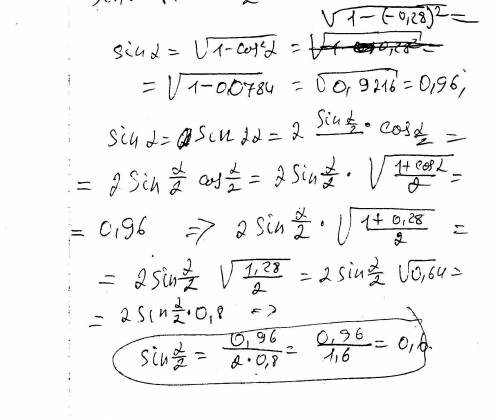 √1-(-0,28)² =
sin α = √1-cos²α =
= √1-0,0784 = √0,9216 = 0,96;
sin α = 2 sin 2α = 2 sin α/2 · cos α/2 =
= 2 sin α/2 cos α/2 = 2 sin α/2 · √(1+cos α)/2 =
= 0,96 ⇒ 2 sin α/2 · √(1+0,28)/2 =
= 2 sin α/2 √1,28/2 = 2 sin α/2 √0,64 =
= 2 sin α/2 · 0,8 ⇒
sin α/2 = 0,96/2·0,8 = 0,96/1,6 = 0,6.